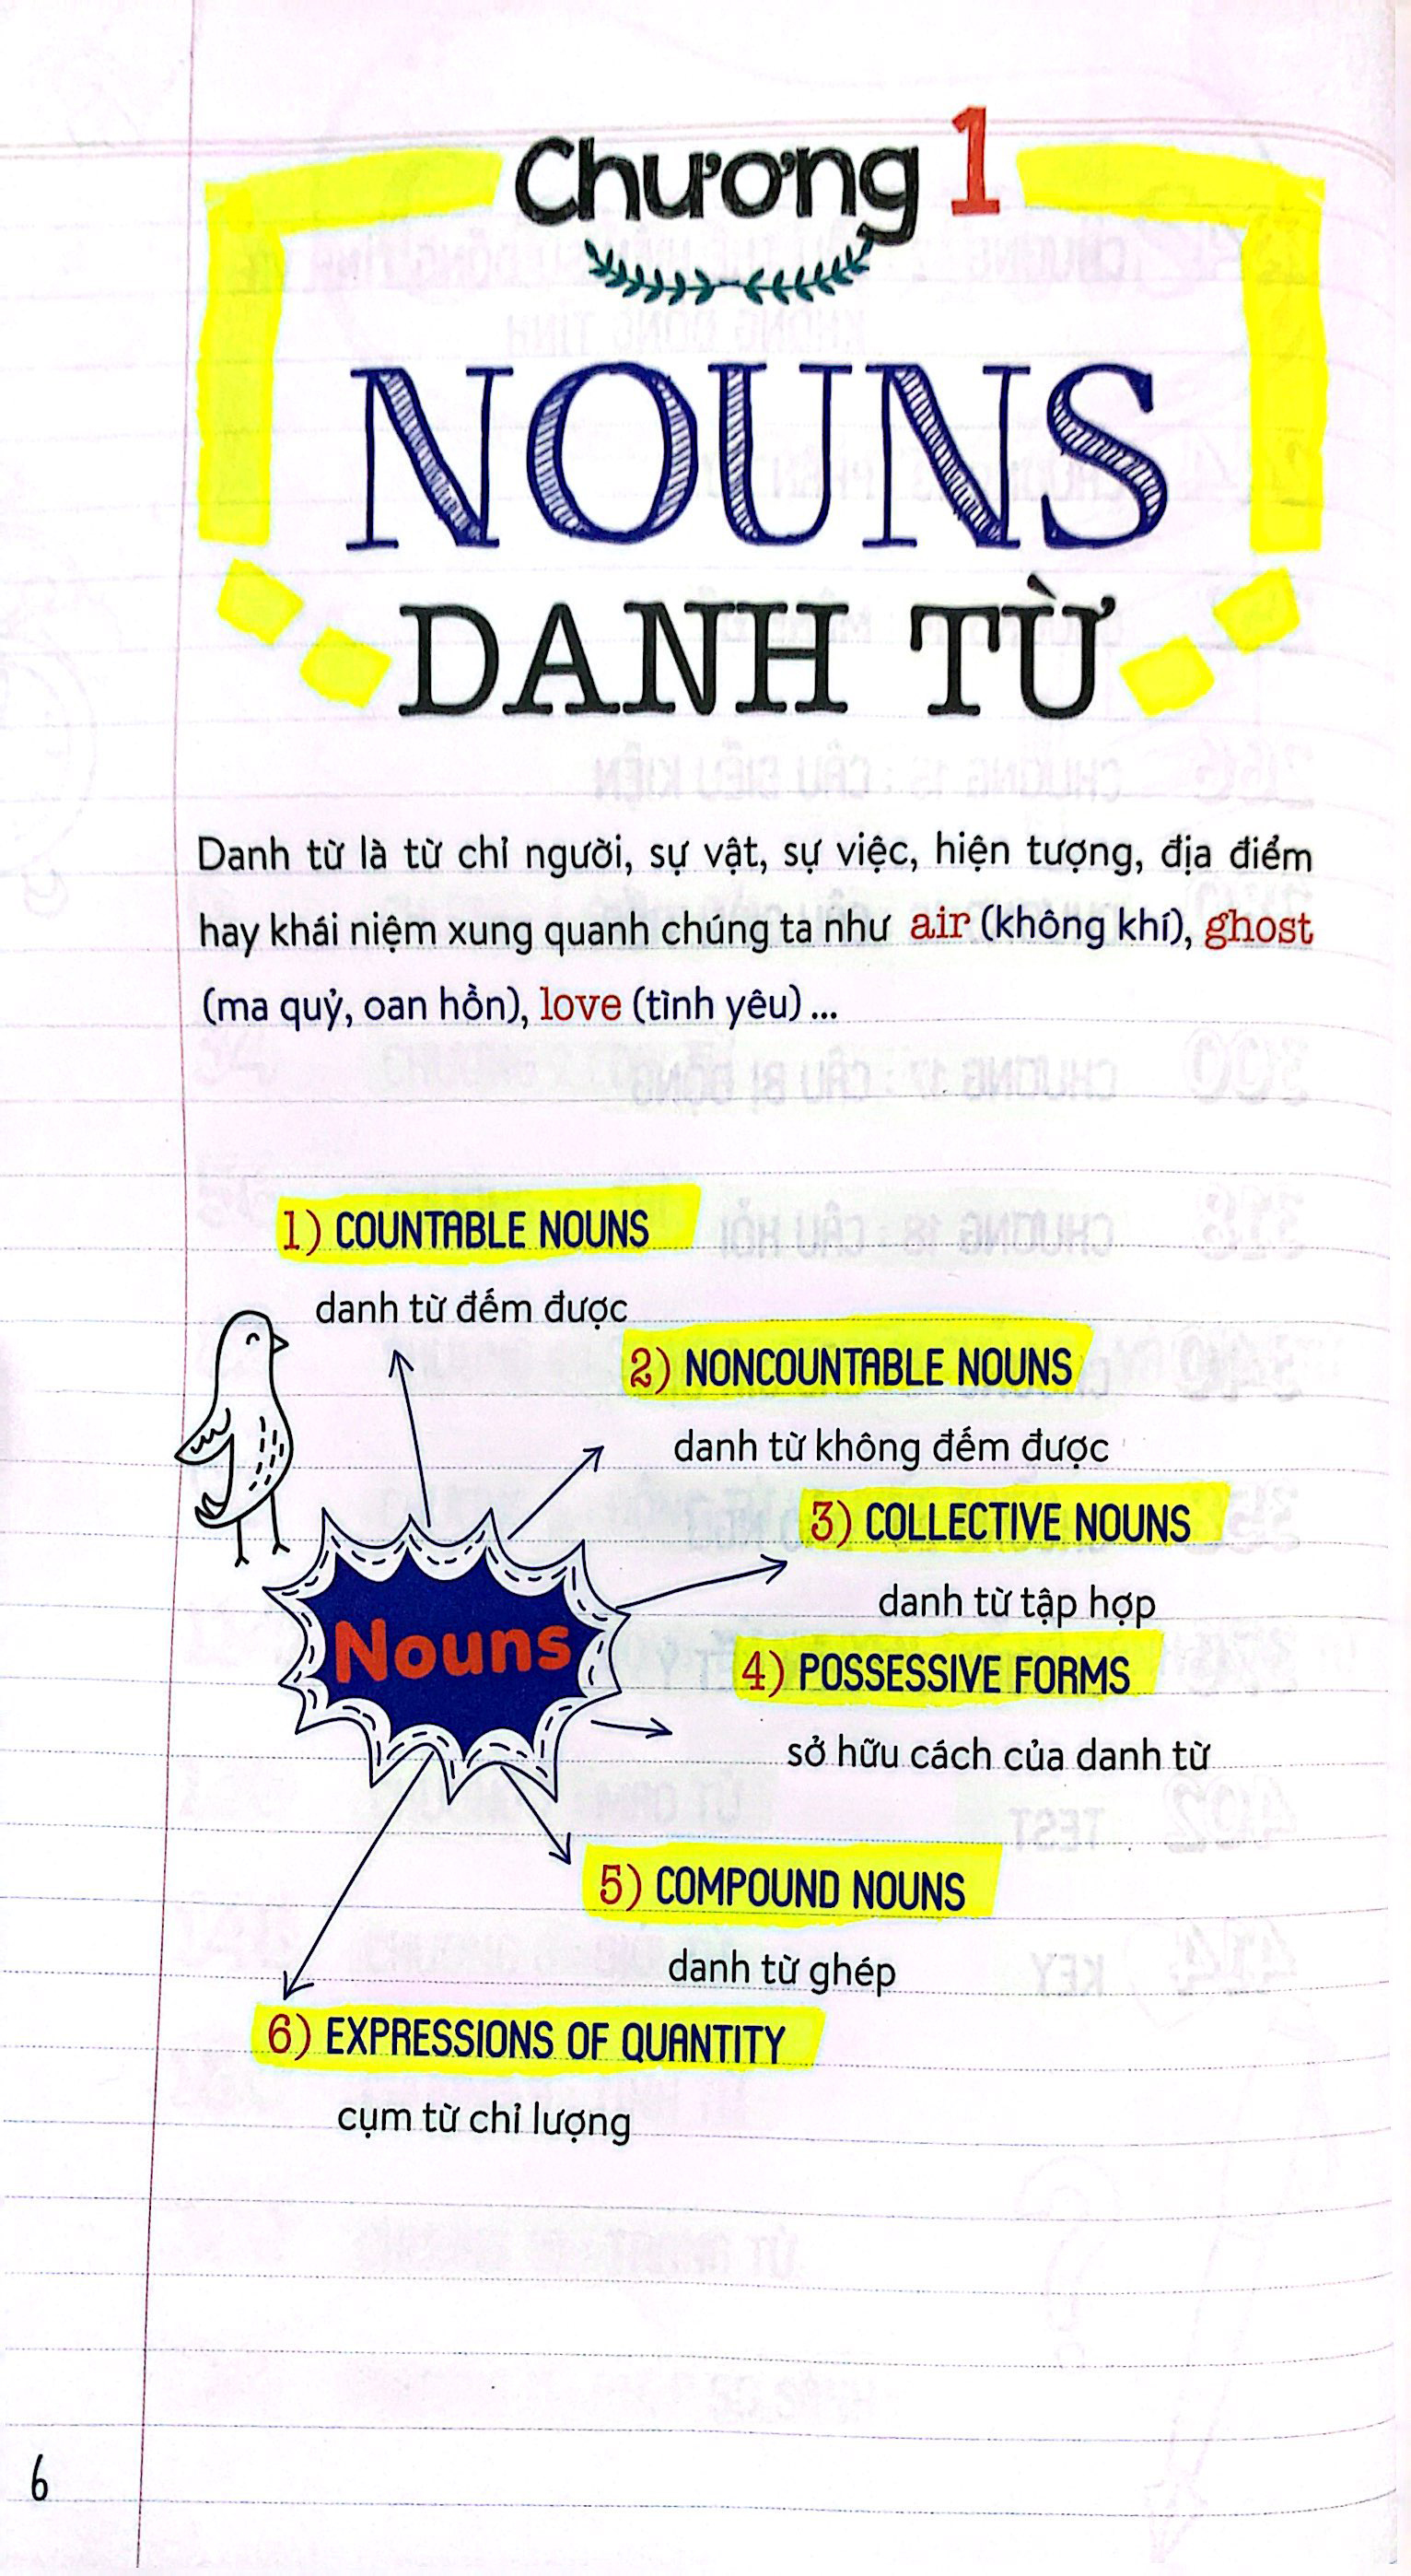 Chương 1
NOUNS
DANH TỪ
Danh từ là từ chỉ người, sự vật, sự việc, hiện tượng, địa điểm
hay khái niệm xung quanh chúng ta như air (không khí), ghost
(ma quỷ, oan hồn), love (tình yêu) ...
1) COUNTABLE NOUNS
danh từ đếm được
2) NONCOUNTABLE NOUNS
danh từ không đếm được
3) COLLECTIVE NOUNS
danh từ tập hợp
Nouns
4) POSSESSIVE FORMS
sở hữu cách của danh từ
5) COMPOUND NOUNS
danh từ ghép
6) EXPRESSIONS OF QUANTITY
cụm từ chỉ lượng
6